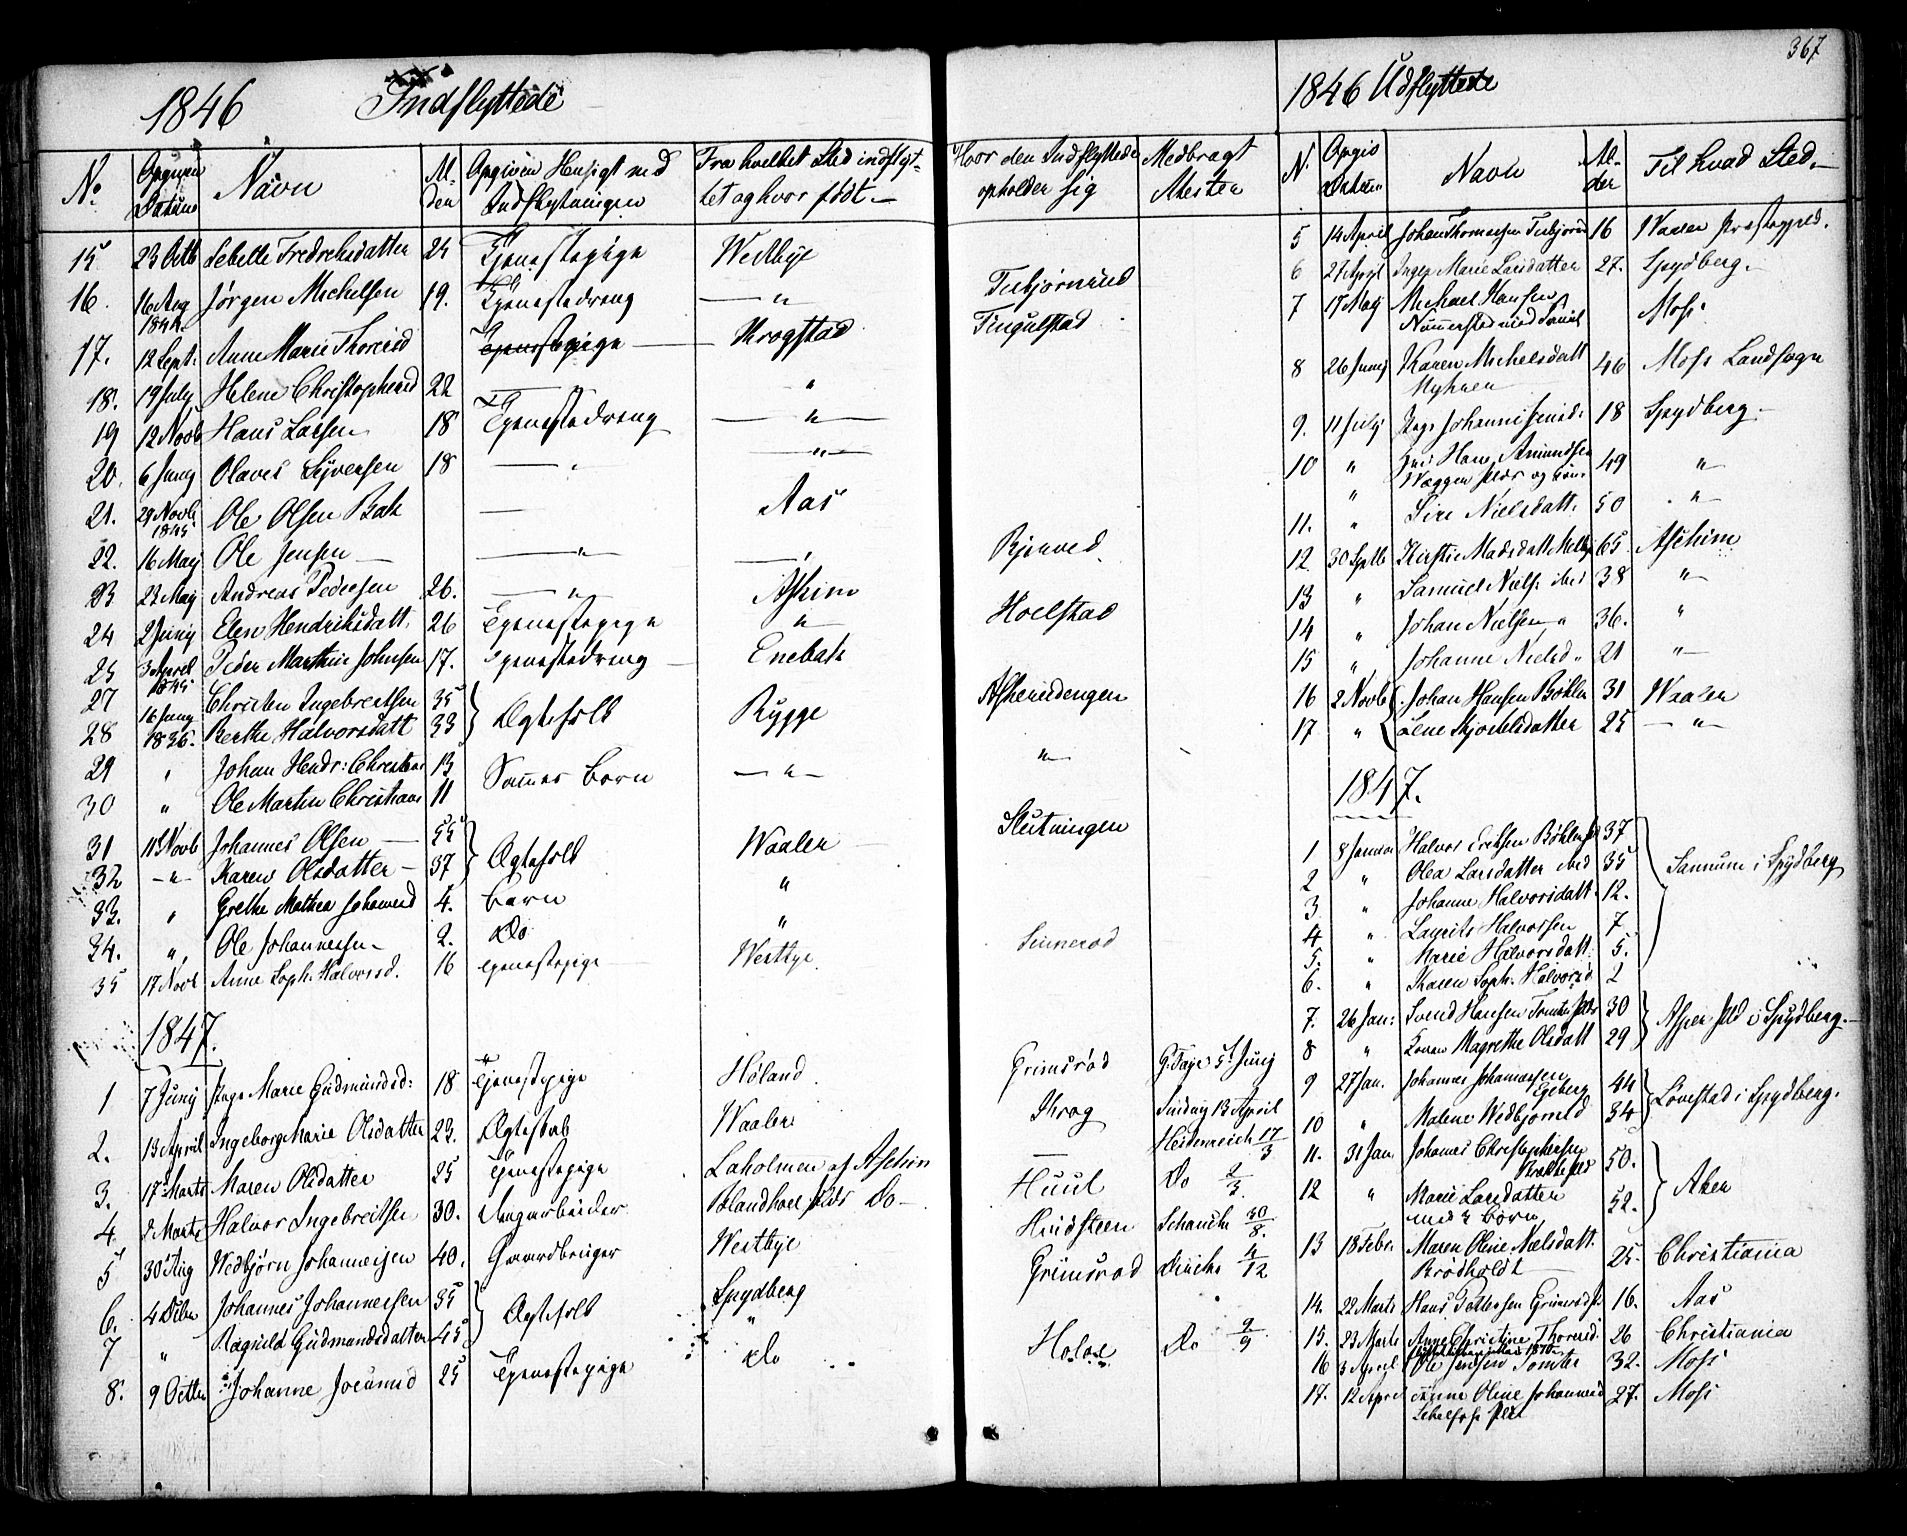 367
1846 Indflyttede
No Opgiven Datum Navn Alder Opgiven Hensigt med Indflytningen Fra hvilket Sted indflyttet og hvor født. Hvor den Indflyttede opholder sig Medbragt Attester
15 23 Octb Fredriksdatter 24 Tjenestepige Westbye
16. 16 Aug Jørgen Michelsen 19. Tjenestedreng — " — Tubjørnrud
17. 12 Sept: Anne Marie Thoresd Tjenestepige Krogstad Tingulstad
18. 19 July Helene Christophersd 22 — "
19 12 Novb Hans Larsen 18 Tjenestedreng — " —
20. 6 Juny Olaves Syversen 18 — — " —
21. 29 Novb 1845 Ole Olsen Bak — Aas
22. 16 May Ole Jensen — — " — — " Bjerved
23 23 May Andreas Pedersen 26. — " — Askim
24 2 Juny Elen Hendriksdatt. 26 Tjenestepige " Hoelstad
25 3 April 1845 Peder Martin Johnsen 17. Tjenestedreng — Enebak
27 16 Juny Christen Ingebretsen 35 Ægtefolk Rygge Askerudengen
28 1836. Berthe Halvorsdatt 33
29 " Johan Hendr: Christens 13 Sammes Børn — " — "
30 " Ole Martin Christians 11
31 11 Novb Johannes Olsen — 55 Ægtefolk Waaler Slutningen
32 — " — Karen Olsdatter — 37
33. " Grethe Mathea Johannesd 4. Barn "
34. " Ole Johannesen — 2. Do "
35 17 Novb Anne Soph: Halvorsd. 16 Tjenestepige Westbye Sinnerød
1847.
1 7 Juny Inge Marie Gudmundsd: 18 Tjenestepige Høland Grimsrød G. Faye 5t Juny
2. 13 April Ingeborg Marie Olsdatter 23. Ægteskab Waaler Krog Sinding 13 April
3. 17 Marts Maren Olsdatter 25 Tjenestepige Laholmen af Aschim — Heidenreich 17/3
4. 2 Marts Halvor Ingebretsen 30. Jngarbeider Do — Huul Do 2/3.
5 30 Aug Wedbjørn Johannesen 40. Gaardbruger Westbye Hindsteen Schanche 30/8.
6. 4 Dcbr Johannes Johannesen 35 Ægtefolk Spydberg Grimsrød 4/12
7 " Ragnild Gudmundsdatter 45 "
8. 9 Octbr Johanne 25 Tjenestepige Do Do 2/9
1846 Udflyttede
N. Opgiv Datum Navn Alder Til hvad Sted. —
5 14 April Johan Thomesen Tubjørnrud 16 Waaler Præstegjeld.
6 27 Apryl Inger Marie Larsdatter 27. Spydberg.
7 17 May Michael Hansen med Familie Moss
8 26 Juny Karen Michelsdatt Myhren 46 Moss Landsogn
9. 11 July Inge Johannesensd: 18 Spydberg.
10 " Hans Amundsen Wæggen 49 "
11. " Siri Nielsdatt: 50 . "
12 30 Sptb Kirstie Madsdatt Melby 65 Aschim
13 " Samuel Niels: ibid 38 "
14 " Johan Nielsen " 36. "
15 " Johanne Nielsd " 21 "
16 2 Novb Johan Hansen Bøhler 31 Waaler
17 " Lene Kjostelsdatter 25 — " —
1847.
1 8 Januar Halvor Eriksen Bøhler 37 Sannum i Spydberg
2 " Olea Larsdatter ibid 35
3 " Johanne Halvorsdatt. 12.
4 " Laurits Halvorsen 7
5. " Marie Halvorsdatt. 5.
6. " Karen Soph. Halvorsd. 2
7. 26 Jan: Svend Hansen Tomter 30 Asper i Spydberg.
8 " Karen Magrethe Olsdatt 29
9 27 Jan. Johannes Johannesen Egeberg 44 Løvestad i Spydberg.
10 " Malene Wedbjørnsd 34
11. 31 Jan. Johannes Christophersen 50. Aker
12 " Marie Larsdatter med 3 Børn 52.
13 18 Febr. Maren Oline Nielsdatt. Brødholdt 25. Christiania
14. 22 Marts Hans Pettersen Grimsrød 16. Aas
15. 23 Marts Anne Christine Thoresd. 26 Christiania
16 3 April Ole Jensen Tomter 32. Moss
17. 12 April Anne Oline Johannesd 27. Moss